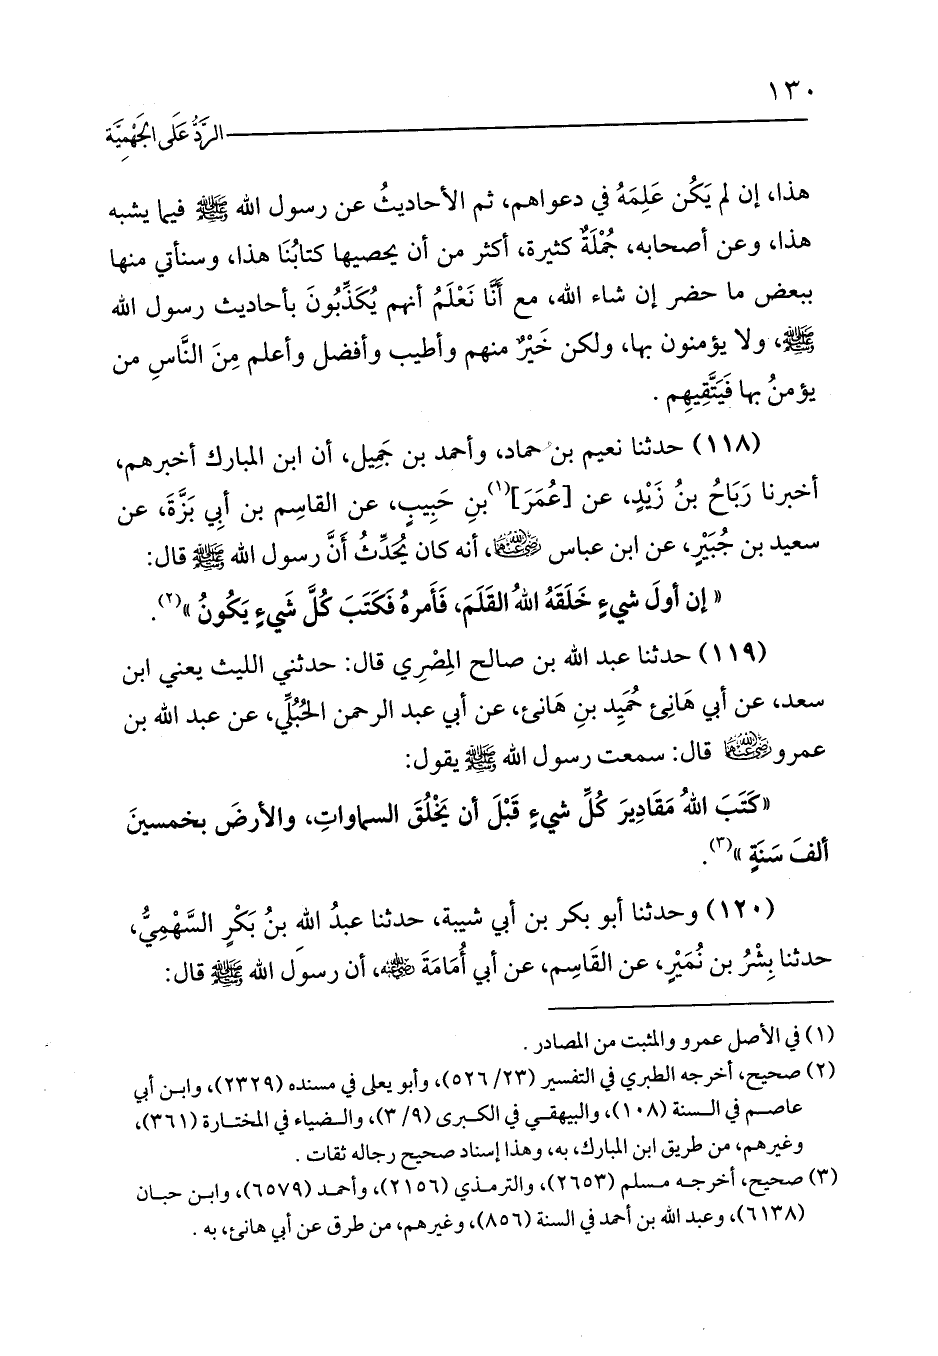 ١٣٠
الرَّدُّ عَلَى الجَهْمِيَّة
هذا، إن لم يَكُن عَلِمَهُ في دعواهم، ثم الأحاديثُ عن رسول الله ﷺ فيما يشبه
هذا، وعن أصحابه، جُمْلَةٌ كثيرة، أكثر من أن يحصيها كتابُنَا هذا، وسنأتي منها
ببعض ما حضر إن شاء الله، مع أَنَّا نَعْلَمُ أنهم يُكَذِّبُونَ بأحاديث رسول الله
ﷺ، ولا يؤمنون بها، ولكن خَيْرٌ منهم وأطيب وأفضل وأعلم مِنَ النَّاسِ من
يؤمنُ بها فَيَتَّقِيهِم .
(١١٨) حدثنا نعيم بن حماد، وأحمد بن جَمِيل، أن ابن المبارك أخبرهم،
أخبرنا رَبَاحُ بنُ زَيْدٍ، عن [عُمَرَ](١) بنِ حَبِيبٍ، عن القاسِم بن أبي بَزَّةَ، عن
سعيد بن جُبَيْرٍ، عن ابن عباس رضي الله عنهما، أنه كان يُحَدِّثُ أَنَّ رسول الله ﷺ قال:
« إن أولَ شيءٍ خَلَقَهُ اللهُ القَلَمَ، فَأَمرهُ فَكَتَبَ كُلَّ شَيءٍ يَكُونُ »(٢).
(١١٩) حدثنا عبد الله بن صالح المِصْرِي قال: حدثني الليث يعني ابن
سعد، عن أبي هَانِئ حُمَيِد بنِ هَانئ، عن أبي عبد الرحمن الحُبُلِّي، عن عبد الله بن
عمرو رضي الله عنهما قال: سمعت رسول الله ﷺ يقول:
«كَتَبَ اللهُ مَقَادِيرَ كُلِّ شيءٍ قَبْلَ أن يَخْلُقَ السماواتِ، والأرضَ بخمسينَ
ألفَ سَنَةٍ »(٣).
(١٢٠) وحدثنا أبو بكر بن أبي شيبة، حدثنا عبدُ اللهِ بنُ بَكْرٍ السَّهْمِيُّ،
حدثنا بِشْرُ بن نُمَيْرٍ، عن القَاسِم، عن أبي أُمَامَةَ رضي الله عنه، أن رسول الله ﷺ قال:
(١) في الأصل عمرو والمثبت من المصادر .
(٢) صحيح، أخرجه الطبري في التفسير (٢٣/ ٥٢٦)، وأبو يعلى في مسنده (٢٣٢٩)، وابن أبي
عاصم في السنة (١٠٨)، والبيهقي في الكبرى (٩/ ٣)، والضياء في المختارة (٣٦١)،
وغيرهم، من طريق ابن المبارك، به، وهذا إسناد صحيح رجاله ثقات .
(٣) صحيح، أخرجه مسلم (٢٦٥٣)، والترمذي (٢١٥٦)، وأحمد (٦٥٧٩)، وابن حبان
(٦١٣٨)، وعبد الله بن أحمد في السنة (٨٥٦)، وغيرهم، من طرق عن أبي هانئ، به .